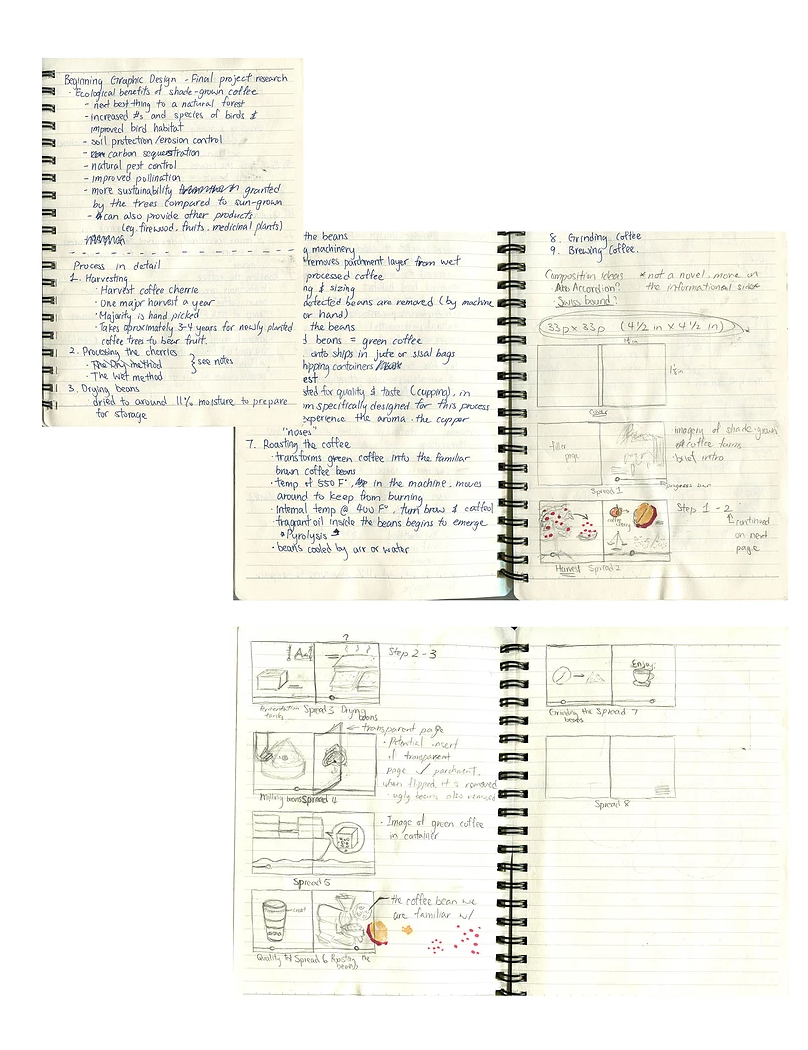 Beginning Graphic Design - Final project research
· Ecological benefits of shade-grown coffee
- next best thing to a natural forest
- increased #s and species of birds &
improved bird habitat
- soil protection/erosion control
- carbon sequestration
- natural pest control
- improved pollination
- more sustainability granted
by the trees compared to sun-grown
- can also provide other products
(eg. firewood, fruits, medicinal plants)
Process in detail
1. Harvesting
· Harvest coffee cherrie
· One major harvest a year
· Majority is hand picked
· Takes aproximately 3-4 years for newly planted
coffee trees to bear fruit.
2. Processing the cherries
· The Dry method
· The Wet method
} see notes
3. Drying beans
dried to around 11% moisture to prepare
for storage
the beans
g machinery
removes parchment layer from wet
processed coffee
ng & sizing
defected beans are removed (by machine
or hand)
the beans
d beans = green coffee
onto ships in jute or sisal bags
hipping containers
est
sted for quality & taste (cupping), in
m specifically designed for this process
experience the aroma. the cupper
"noses"
7. Roasting the coffee
· transforms green coffee into the familiar
brown coffee beans
· temp of 550 F°, in the machine, moves
around to keep from burning
· Internal temp @ 400 F°, turn brow &
fragrant oil inside the beans begins to emerge
Pyrolysis
· beans cooled by air or water
8. Grinding Coffee
9. Brewing Coffee.
Composition Ideas
· Accordion?
· Swiss bound?
*not a novel, more on
the informational side
33p x 33p (4 1/2 in x 4 1/2 in)
Cover
filler
page
imagery of shade-grown
coffee farms
· brief intro
progress bar
Spread 1
coffee
cherry
Step 1-2
continued
on next
page
Harvest Spread 2
?
Step 2-3
Fermentation
tanks
Spread 3
Drying
beans
transparent page
· Potential insert
of transparent
page w/ parchment,
when flipped, it is removed
· ugly beans also removed
Milling beans Spread 4
· Image of green coffee
in container
Spread 5
the coffee bean we
are familiar w/
Quality tst Spread 6 Roasting the
beans
Enjoy!
Grinding the Spread 7
beans
Spread 8